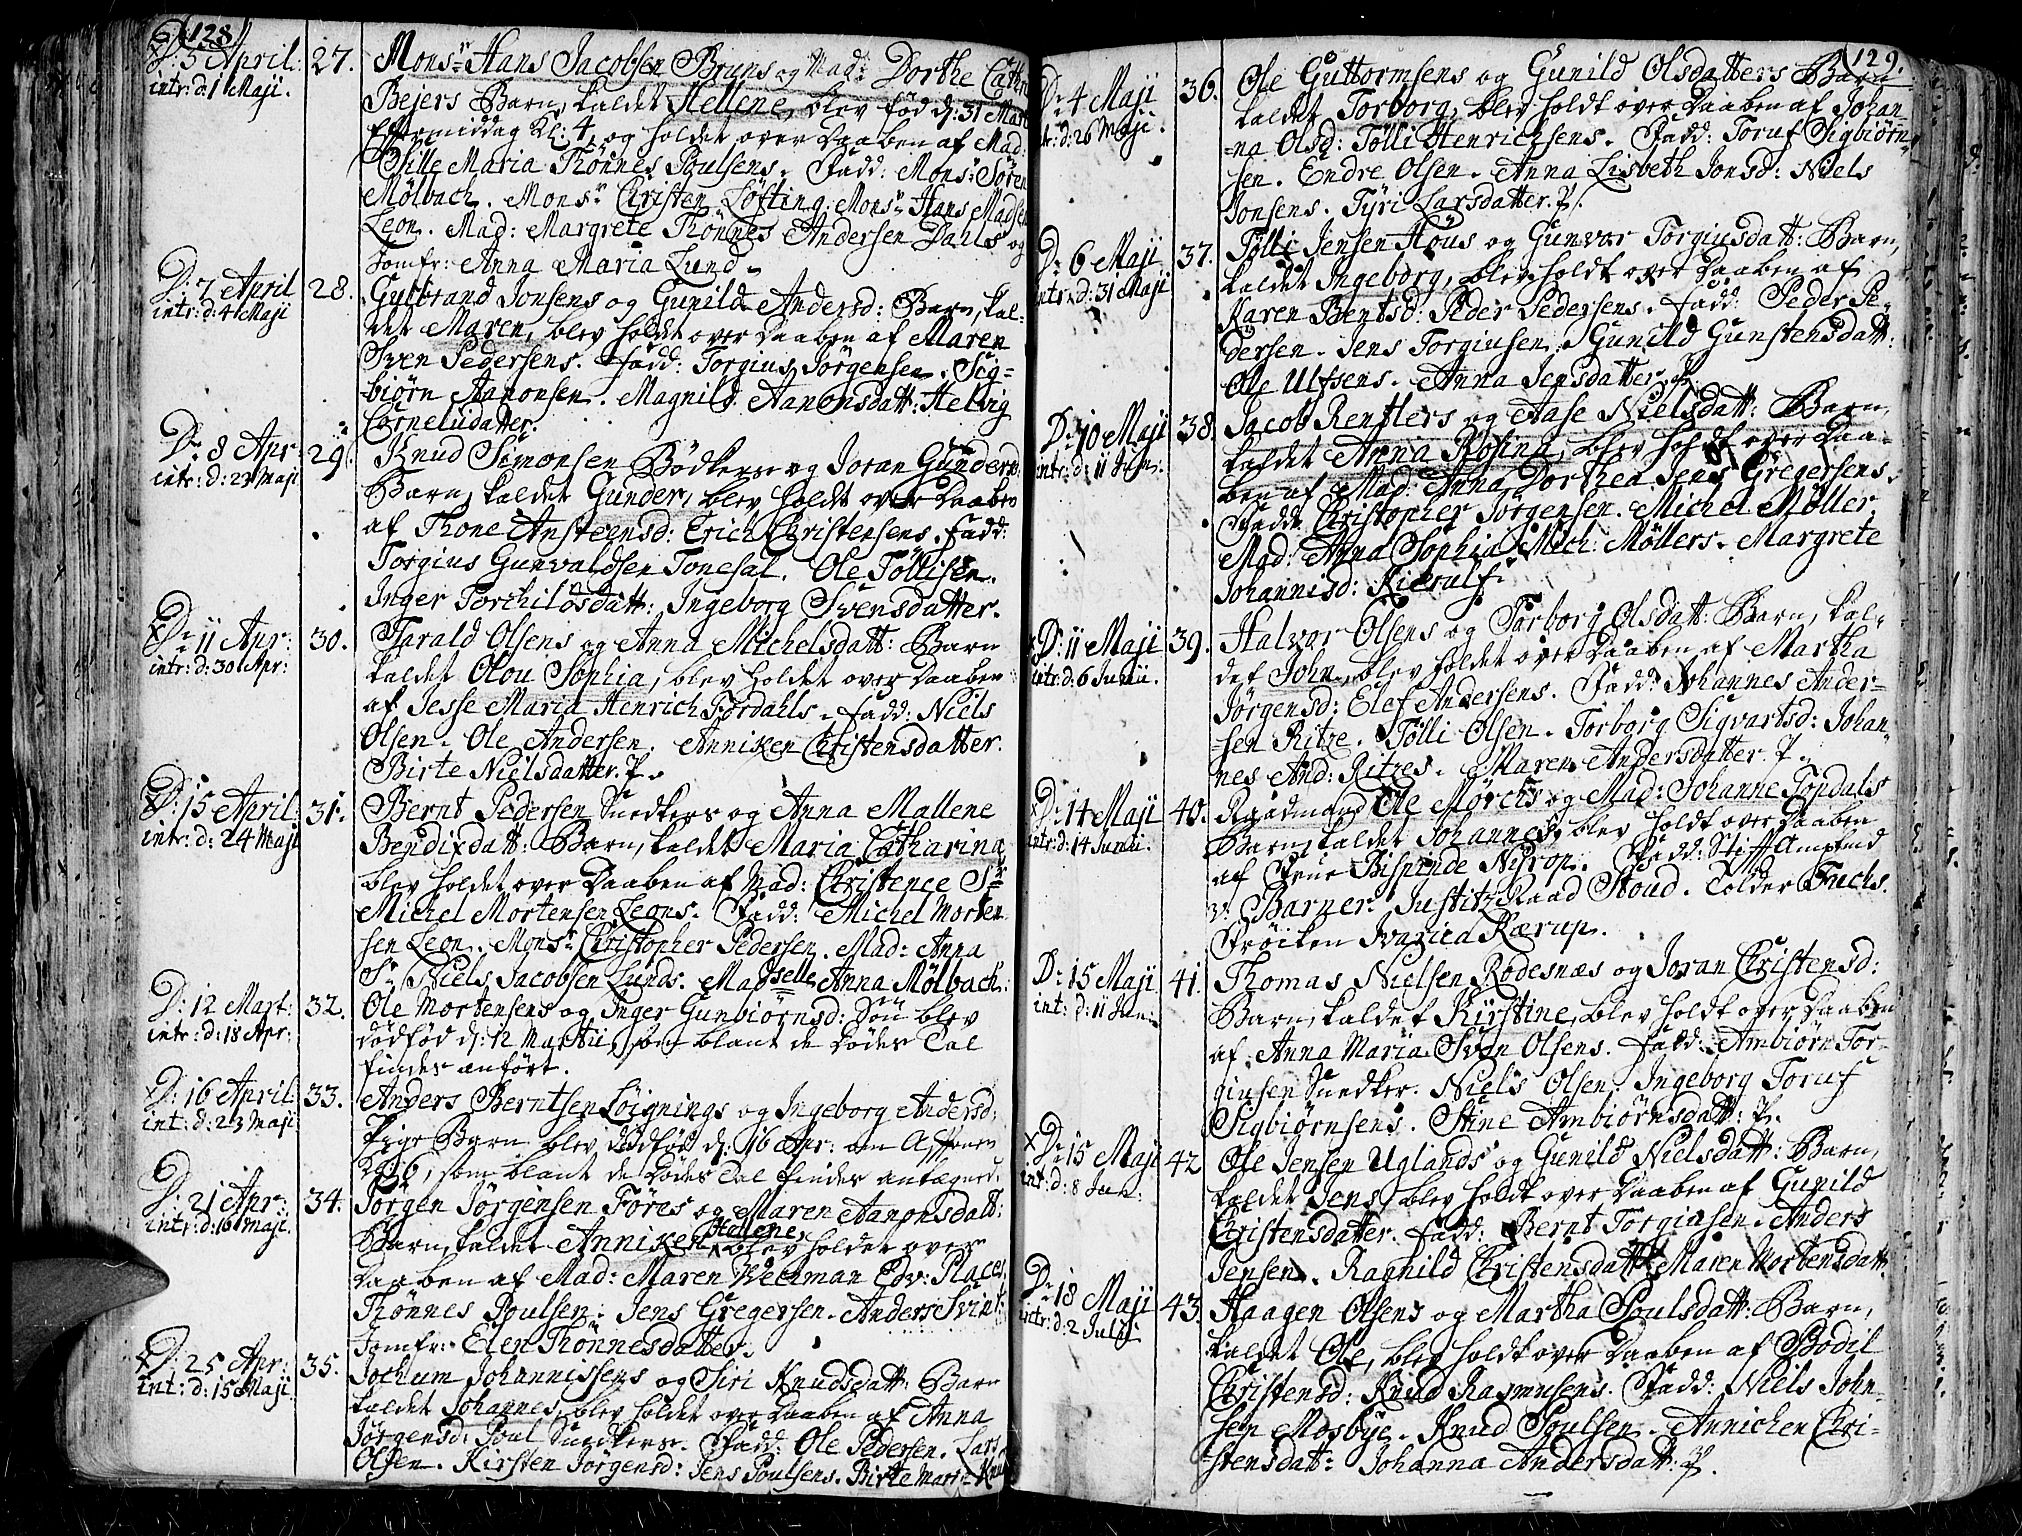 128
D: 5 April:
intr: d: 1 Maji.
27.
Monsr Hans Jacobsen Bruns og Mad: Dorthe Cathr
Bejers Barn, kaldet Hellene, blev fød d: 31 Mart
Eftermiddag Kl: 4, og holdet over Daaben af Mad:
Sille Maria Thönnes Poulsens. Fadd: Monsr Sören
Mölbach. Monsr Christen Löfting. Monsr Hans Madsen
Leon. Mad: Margrete Thönnes Andersen Dahls og
Jomfr: Anna Maria Lund.
D: 7 April
intr: d: 4 Maji
28.
Gulbrand Jonsens og Gunild Andersd: Barn, kal-
det Maren, blev holdt over Daaben af Maren
Sven Pedersens. Fadd: Torgius Jörgensen. Sig-
biörn Aanonsen. Magnild Aanonsdatt: Helvig
Corneliidatter.
D: 8 Apr:
intr: d: 23 Maji
29.
Knud Simonsen Bödkers og Joran Gundersd:
Barn, kaldet Gunder, blev holdt over Daaben
af Thone Ansteensd: Erich Christensens. Fadd:
Torgius Gunvaldsen Tonesal. Ole Töllisen.
Inger Torchildsdatt: Ingeborg Svensdatter.
D: 11 Apr:
intr: d: 30 Apr:
30.
Tarald Olsens og Anna Michelsdatt: Barn
kaldet Olou Sophia, blev holdet over Daaben
af Jesse Maria Henrich Fördahls. Fadd: Niels
Olsen. Ole Andersen. Anniken Christensdatter.
Birte Nielsdatter. P.
D: 15 April:
intr: d: 24 Maji
31.
Bernt Pedersen Snedkers og Anna Mallene
Bendixdatt: Barn, kaldet Maria Catharina
blev holdet over Daaben af Mad: Christence Sr
Michel Mortensen Leons. Fadd: Michel Morten-
sen Leon. Monsr Christopher Pedersen. Mad: Anna
Sr Niels Jacobsen Lunds. Madselle Anna Mölbach.
D: 12 Mart:
intr: d: 18 Apr:
32.
Ole Mortensens og Inger Gunbiörnsd: Sön blev
dödfød d: 12 Martii, som blant de Dödes Tal
findes anfört.
D: 16 April:
int: d: 23 Maji
33.
Anders Berntsen Löignings og Ingeborg Andersd:
Pige Barn blev dödfød d: 16 Apr: om Aftenen
som blant de Dödes Tal findes antegned.
D: 21 Apr:
intr: d: 16 Maji.
34.
Jörgen Jörgensen Föres og Maren Aanonsdatt:
Barn, kaldet Anniken Hellene, blev holdet over
Daaben af Mad: Maren Wechman Edv: Places.
Thönnes Poulsen. Jens Gregersen. Anders Svint.
Jomfr: Elen Thönnesdatter.
D: 25 Apr:
int: d: 15 Maji
35.
Jochum Johannissens og Siri Knudsdatt: Barn
kaldet Johannes, blev holdet over Daaben af Anna
Jörgensd: Poul Snedkers. Fadd: Ole Pedersen. Lars
Olsen. Kirsten Jorgensd: Jens Poulsens. Birte Marie Knud
129.
D: 4 Maji
intr: d: 26 Maji.
36.
Ole Guttormsens og Gunild Olsdatters Barn
kaldet Torborg, blev holdt over Daaben af Johan-
na Olsd: Tölli Henrichsens. Fadd: Toruf Sigbiörn-
sen. Endre Olsen. Anna Lisbeth Jonsd: Niels
Jonsens. Tyri Larsdatter. P.
D: 6 Maji
intr: d: 31 Maji
37.
Tölli Jensen Höus og Gunvor Torgiusdatt: Barn,
kaldet Ingeborg, blev holdt over Daaben af
Karen Bentsd: Peder Pedersens. Fadd: Peder Pe-
dersen. Jens Torgiusen. Gunild Gunstensdatt:
Ole Ulfsens. Anna Jensdatter. P.
D: 10 Maji
intr: d: 11 Jun:
38.
Jacob Rentlers og Aase Nielsdatt: Barn,
kaldet Anna Rosina, blev holdt over Daa-
ben af Mad: Anna Dorthea Jens Gregersens.
Fadd: Christopher Jorgensen. Michel Möller.
Mad: Anna Sophia Mich: Möllers. Margrete
Johannisd: Kierulf.
D: 11 Maji
intr: d: 6 Junii.
39.
Halvor Olsens og Torborg Olsdatt: Barn, kal-
det John, blev holdet over Daaben af Martha
Jørgensd: Elef Andersens. Fadd: Johannes Ander-
sen Ritze. Tölli Olsen. Torborg Sigvartsd: Johan-
nes And: Ritzes. Maren Andersdatter. P.
D: 14 Maji
intr: d: 14 Junii.
40.
Raadmand Ole Mörchs og Mad: Johanne Topdals
Barn, kaldet Johannes, blev holdt over Daaben
af Frue Bispinde Nyrop. Fadd: Stift Amptmd
v: Barner. Justitz Raad Stoud. Tolder Fuchs.
Fröiken Ivarica Kærup.
D: 15 Maji
int: d: 11 Jun:
41.
Thomas Nielsen Rodesnæs og Joran Christensd:
Barn, kaldet Kirstine, blev holdt over Daaben
af Anna Maria Sven Olsens. Fadd: Ambiörn Tor-
giusen Snedker. Niels Olsen. Ingeborg Toruf
Sigbiörnsens. Stine Ambiörnsdatt: P.
D: 15 Maji
int: d: 8 Jun:
42
Ole Jensen Uglands og Gunild Nielsdatt: Barn,
kaldet Jens, blev holdt over Daaben af Gunild
Christensdatter. Fadd: Bernt Torgiusen. Anders
Jensen. Ragnild Christensdatt: Maren Mortensdatt.
D: 18 Maji
intr: d: 2 Julii
43.
Haagen Olsens og Martha Poulsdatt: Barn,
kaldet Ole, blev holdt over Daaben af Bodil
Christensd: Knud Rasmusens. Fadd: Niels John-
sen Mosbye. Knud Poulsen. Annichen Chri-
stensdatt: Johanna Andersdatt: P.